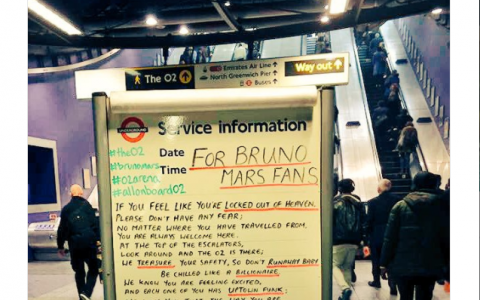 The O2
Emirates Air Line
North Greenwich Pier
Buses
Way out
UNDERGROUND
Service information
#theO2
#brunomars
#o2arena
#allonboardO2
Date
Time
FOR BRUNO
MARS FANS
IF YOU FEEL LIKE YOU'RE LOCKED OUT OF HEAVEN,
PLEASE DON'T HAVE ANY FEAR;
NO MATTER WHERE YOU HAVE TRAVELLED FROM,
YOU ARE ALWAYS WELCOME HERE.
AT THE TOP OF THE ESCALATORS,
LOOK AROUND AND THE O2 IS THERE;
WE TREASURE YOUR SAFETY, SO DON'T RUNAWAY BABY
BE CHILLED LIKE A BILLIONAIRE.
WE KNOW YOU ARE FEELING EXCITED,
AND EACH ONE OF YOU HAS UPTOWN FUNK;
THE WAY YOU ARE